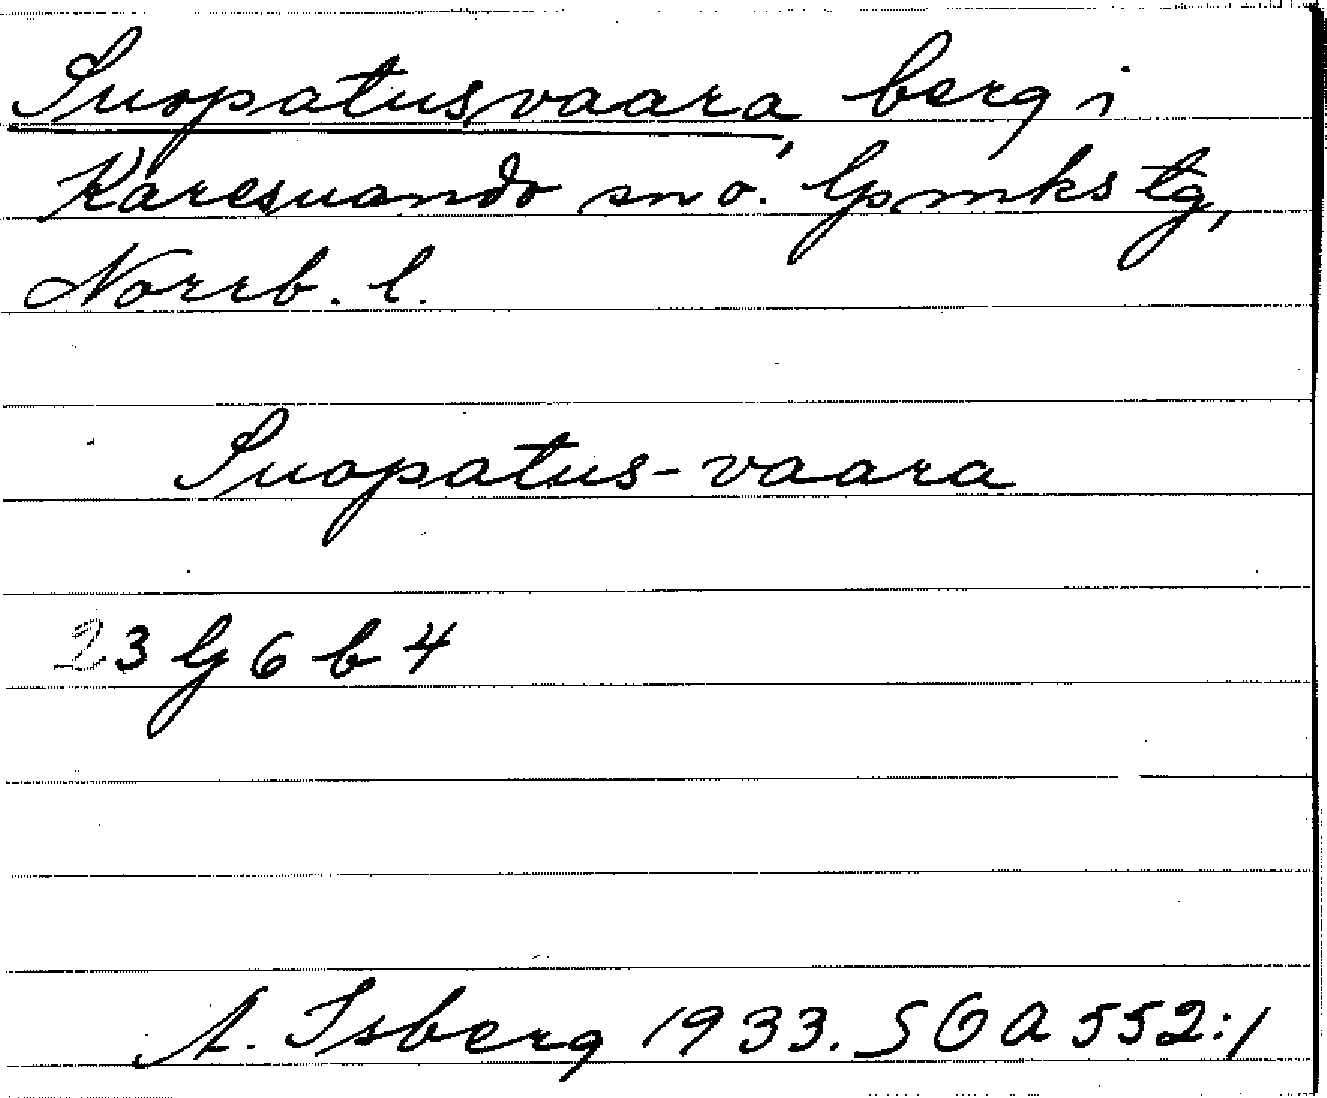 Suopatusvaara, berg i
Karesuando sn o. lpmks tg,
Norrb. l.
Suopatus-vaara
23 G 6 b 4
A. Isberg 1933. SOA 552:1